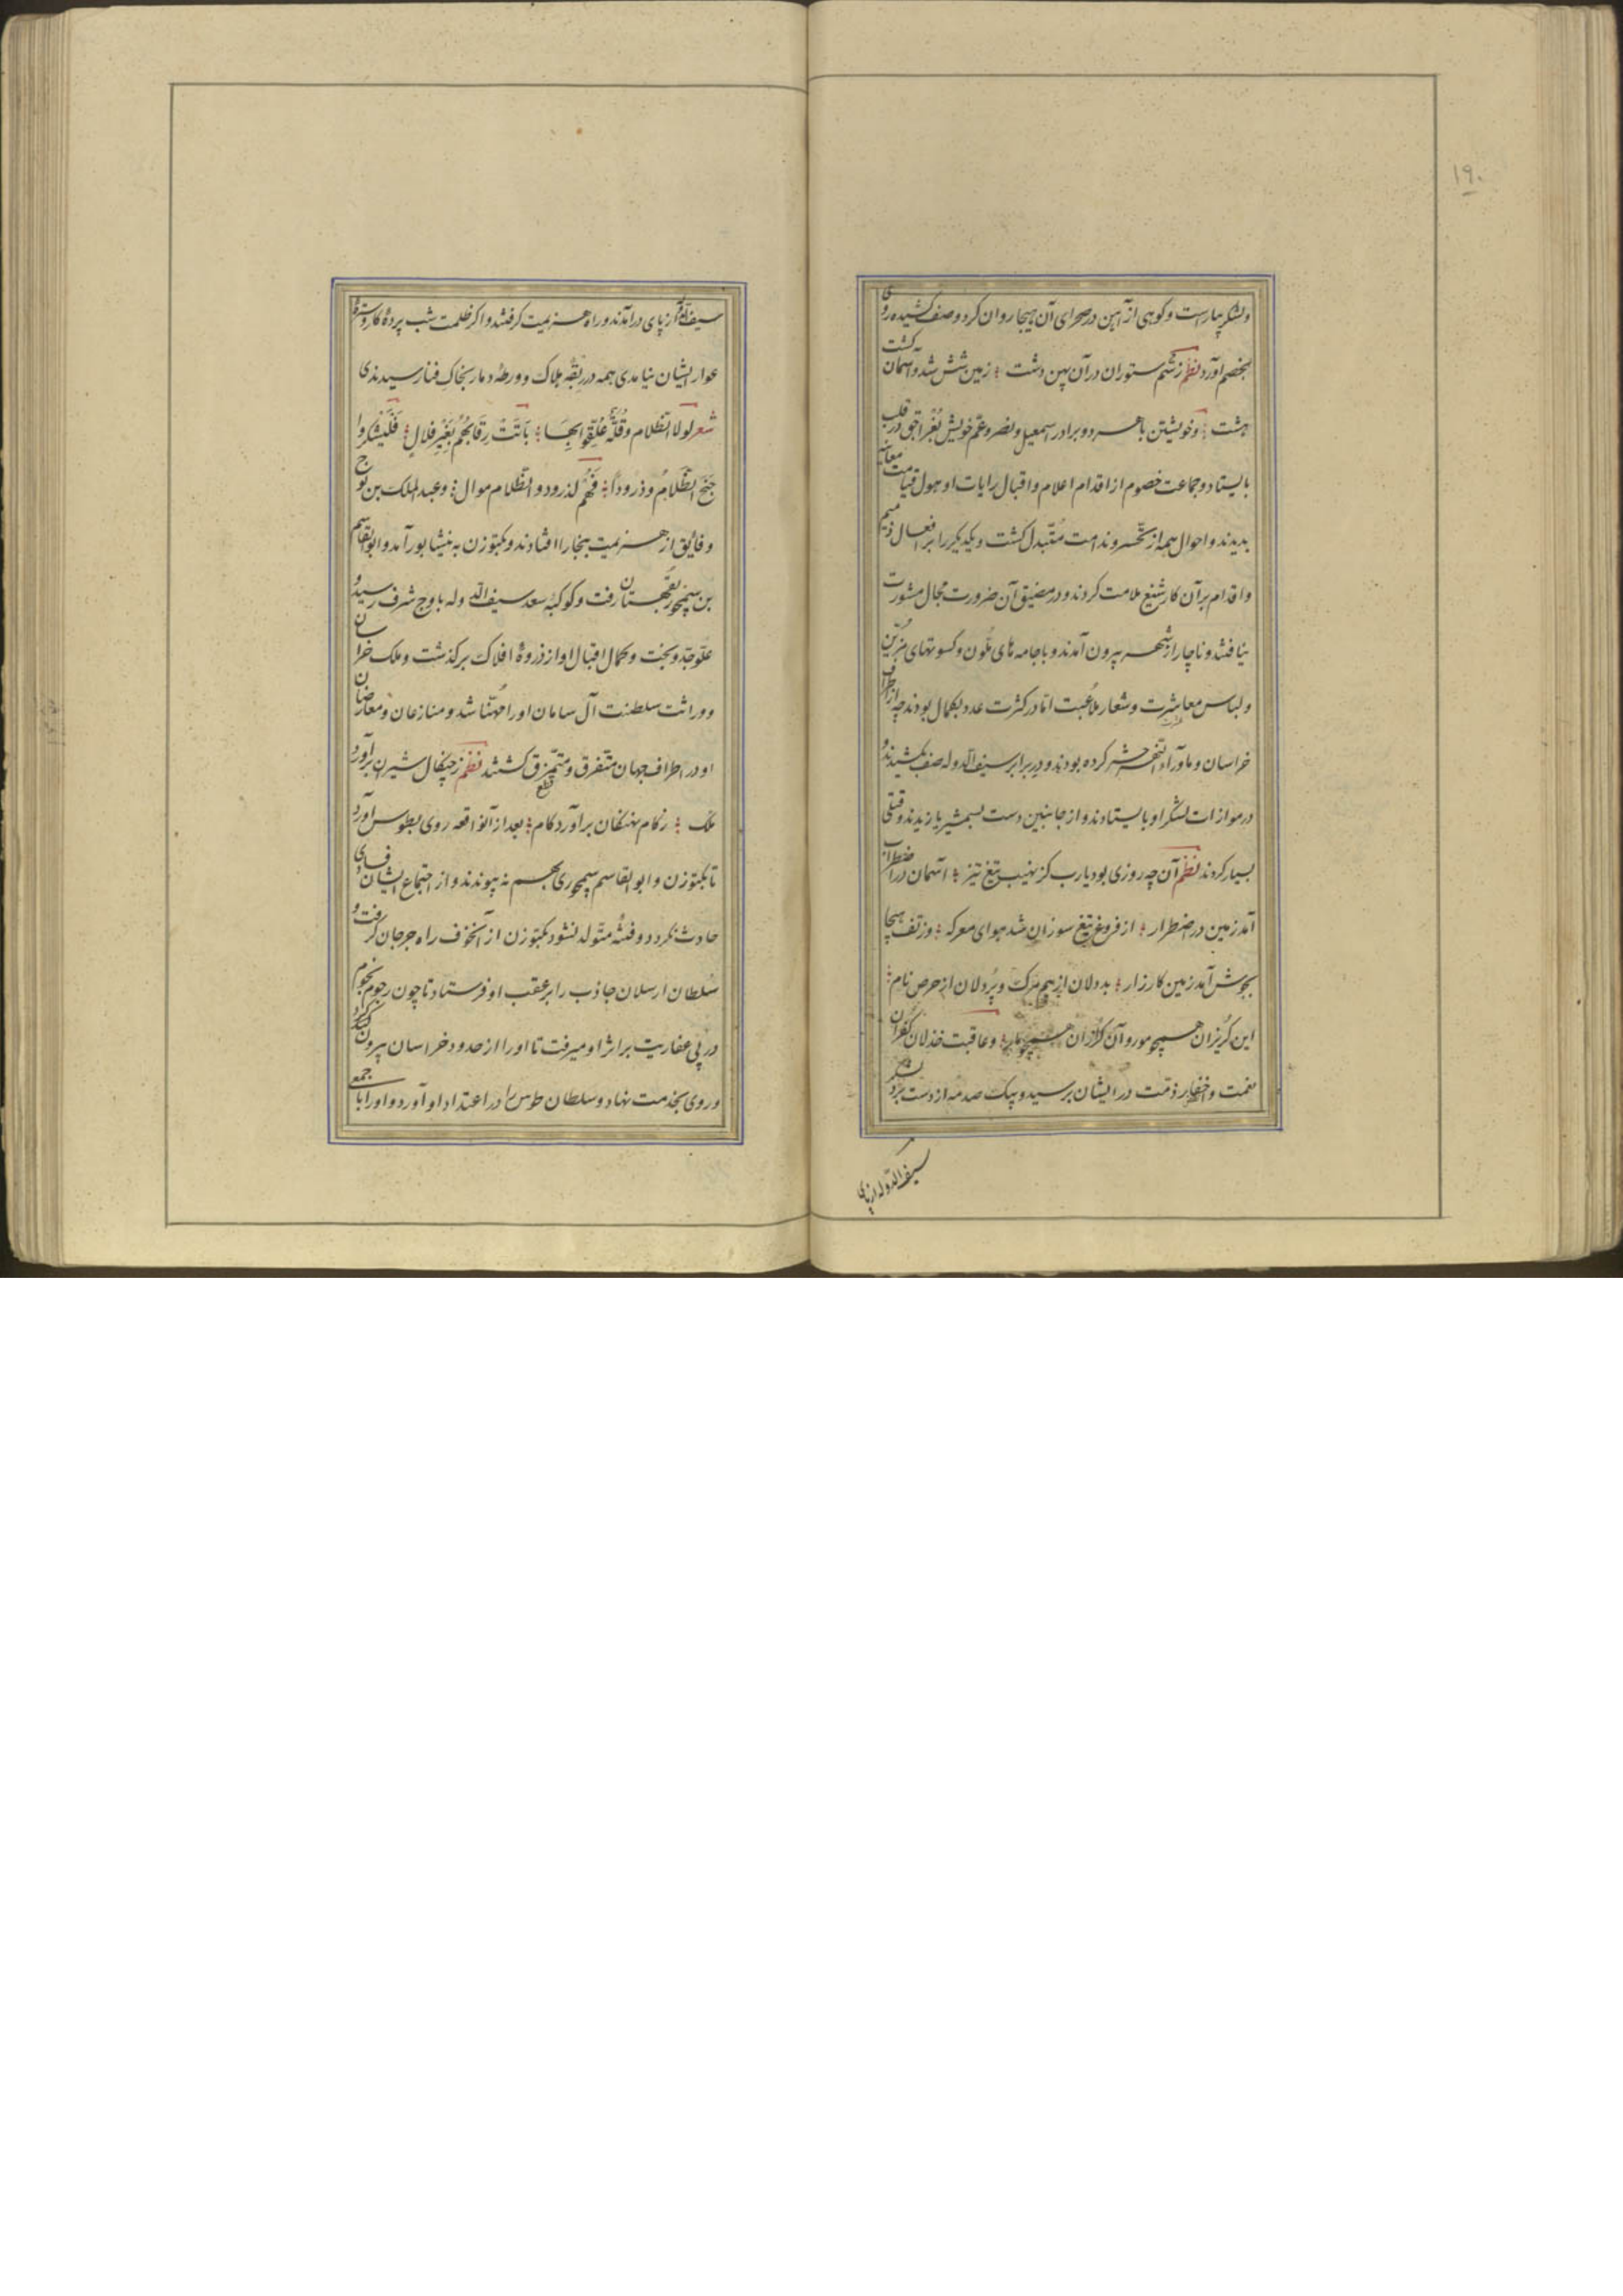 ۱۹۰
ولشکر بیاراست و کوهی از آهن در صحرای آن هیجا روان کرد و صف کشیده روی
بخصم آورد نظم ز سم ستوران در آن پهن دشت ؛ زمین شش شد و آسمان گشت
هشت ؛ و خویشتن با هر دو برادر اسمعیل و نصر و عم خویش بغراجق در قلب
بایستاد و جماعت خصوم از اقدام اعلام و اقبال رایات او هول قیامت معاینه
بدیدند و احوال همه از تحسر و ندامت متبدل کشت و یکدیکر را بر افعال ذمیم
و اقدام بر آن کار شنیع ملامت کردند و در مضیق آن ضرورت مجال مشورت
نیافتند و ناچار از شهر بیرون آمدند و با جامه های ملون و کسوتهای مزین
و لباس معاشرت و شعار ملاعبت اما در کثرت عدد بکمال بودند چه از اطراف
خراسان و ماوراء النهر حشر کرده بودند و در برابر سیف الدوله صف بکشیدند و
در موازات لشکر او بایستادند و از جانبین دست بشمشیر یازیدند و قتلی
بسیار کردند نظم آن چه روزی بود یارب کز نهیب تیغ تیز ؛ آسمان در اضطراب
آمد زمین در اضطرار ؛ از فروغ تیغ سوزان شد هوای معرکه ؛ وز تف هیجا
بجوش آمد زمین کارزار ؛ بددلان از بیم مرک و پردلان از حرص نام ؛
این کریزان همچو مور و آن کرازان همچو مار ؛ و عاقبت خذلان کفران
نعمت و اخفار ذمت در ایشان برسید و بیک صدمه از دست برد لشکر
سیف الدوله از پای
سیف الدوله از پای درآمدند و راه هزیمت کرفتند و اکر ظلمت شب پرده کار و ستر
عوار ایشان نیامدی همه در ربقه هلاک و ورطه دمار بخاک فنا رسیدندی
شعر لولا الظلام و قلة علقوا بها ؛ باتت رقابهم بغیر قلال ؛ فلیشکروا
جنح الظلام و ذرودا ؛ فهم لذرود و الظلام موال ؛ و عبد الملک بن نوح
و فایق از هزیمت ببخارا افتادند و بکتوزن به نیشابور آمد و ابو القاسم
بن سیمجور بقهستان رفت و کوکبه سعد سیف الدوله باوج شرف رسید و
علو جد و بخت و کمال اقبال او از ذروه افلاک برکذشت و ملک خراسان
و وراثت سلطنت آل سامان او را مهنا شد و منازعان و معارضان
او در اطراف جهان متفرق و متمزق کشتند نظم ز چنکال شیران برآورد
ملک ؛ ز کام نهنکان برآورد کام ؛ بعد از آن واقعه روی بطوس آورد
تا بکتوزن و ابو القاسم سیمجوری بهم نپیوندند و از اجتماع ایشان فسادی
حادث نکردد و فتنه متولد نشود بکتوزن از آن خوف راه جرجان کرفت و
سلطان ارسلان جاذب را بر عقب او فرستاد تا چون رجوم نجوم
در پی عفاریت بر اثر او میرفت تا او را از حدود خراسان بیرون کرد
و روی بخدمت نهاد و سلطان طوس را در اعتداد او آورد و او را با جمعی